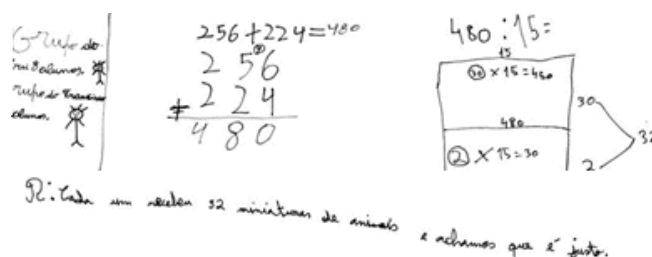 Grupo do
8 alunos
Grupo do Francisco
alunos.
256+224=480
256
+ 224
480
480:15=
15
30 × 15=450
480
2 × 15=30
30
2
32
R: Cada um recebeu 32 miniaturas de animais e achamos que é justo.